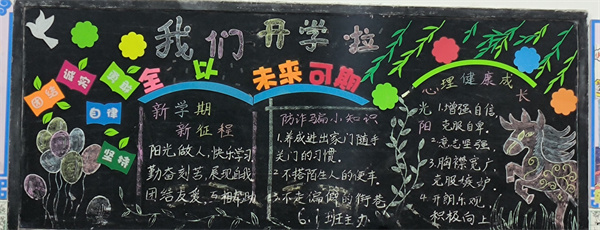 我们开学拉
全以未来可期
团结
诚实
勇敢
自律
坚持
新学期
新征程
阳光做人,快乐学习,
勤奋刻苦,展现自我
团结友爱,互相帮助
防诈骗小知识
1.养成进出家门随手
关门的习惯.
2.不搭陌生人的便车.
3.不走偏僻的街巷
6.1班主办
心理健康成长
阳光
1.增强自信,
克服自卑.
2.意志坚强.
3.胸襟宽广,
克服嫉妒.
4.开朗乐观,
积极向上